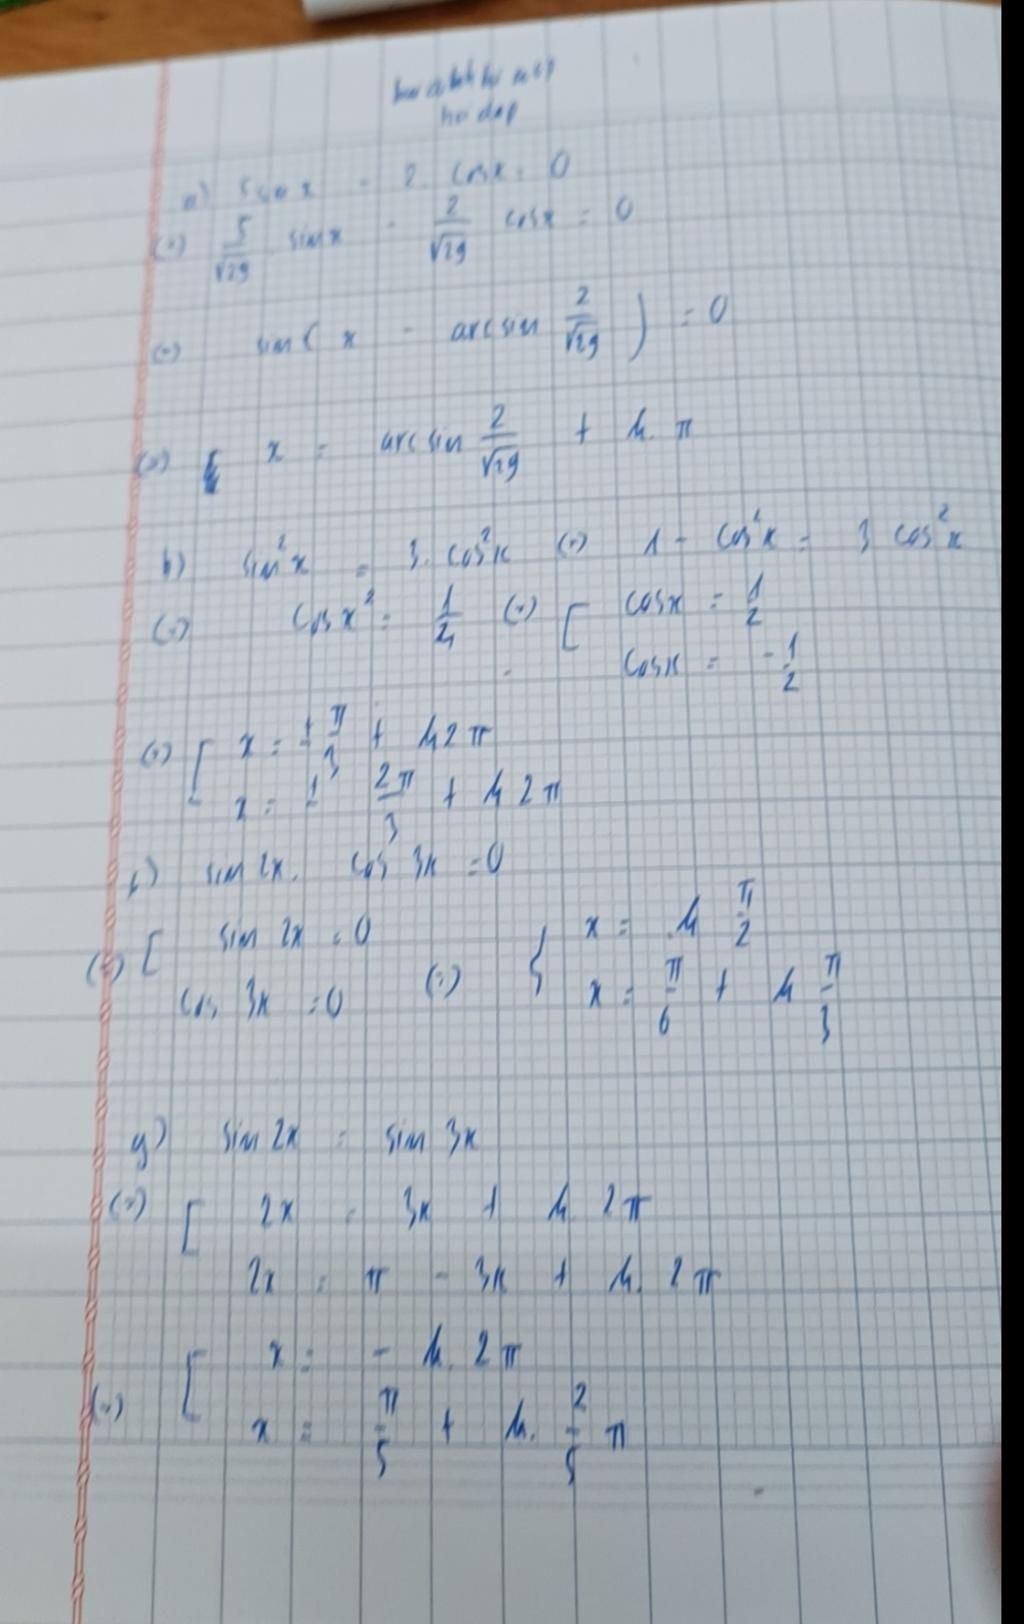 hoi dap
a) 5 sin x - 2. cos x = 0
(=) 5/√29 sin x - 2/√29 cos x = 0
(=) sin( x - arcsin 2/√29 ) = 0
(=) x = arcsin 2/√29 + k. π
b) sin²x = 3. cos²x (=) 1 - cos²x = 3 cos²x
(=) cos x² = 1/4 (=) [ cos x = 1/2
cos x = -1/2
(=) [ x = ± π/3 + k2π
x = ± 2π/3 + k2π
f) sin 2x. cos 3x = 0
(=) [ sin 2x = 0 (=) { x = k π/2
cos 3x = 0 x = π/6 + k π/3
g) sin 2x = sin 3x
(=) [ 2x = 3x + k. 2π
2x = π - 3x + k. 2π
(=) [ x = - k. 2π
x = π/5 + k. 2/5 π